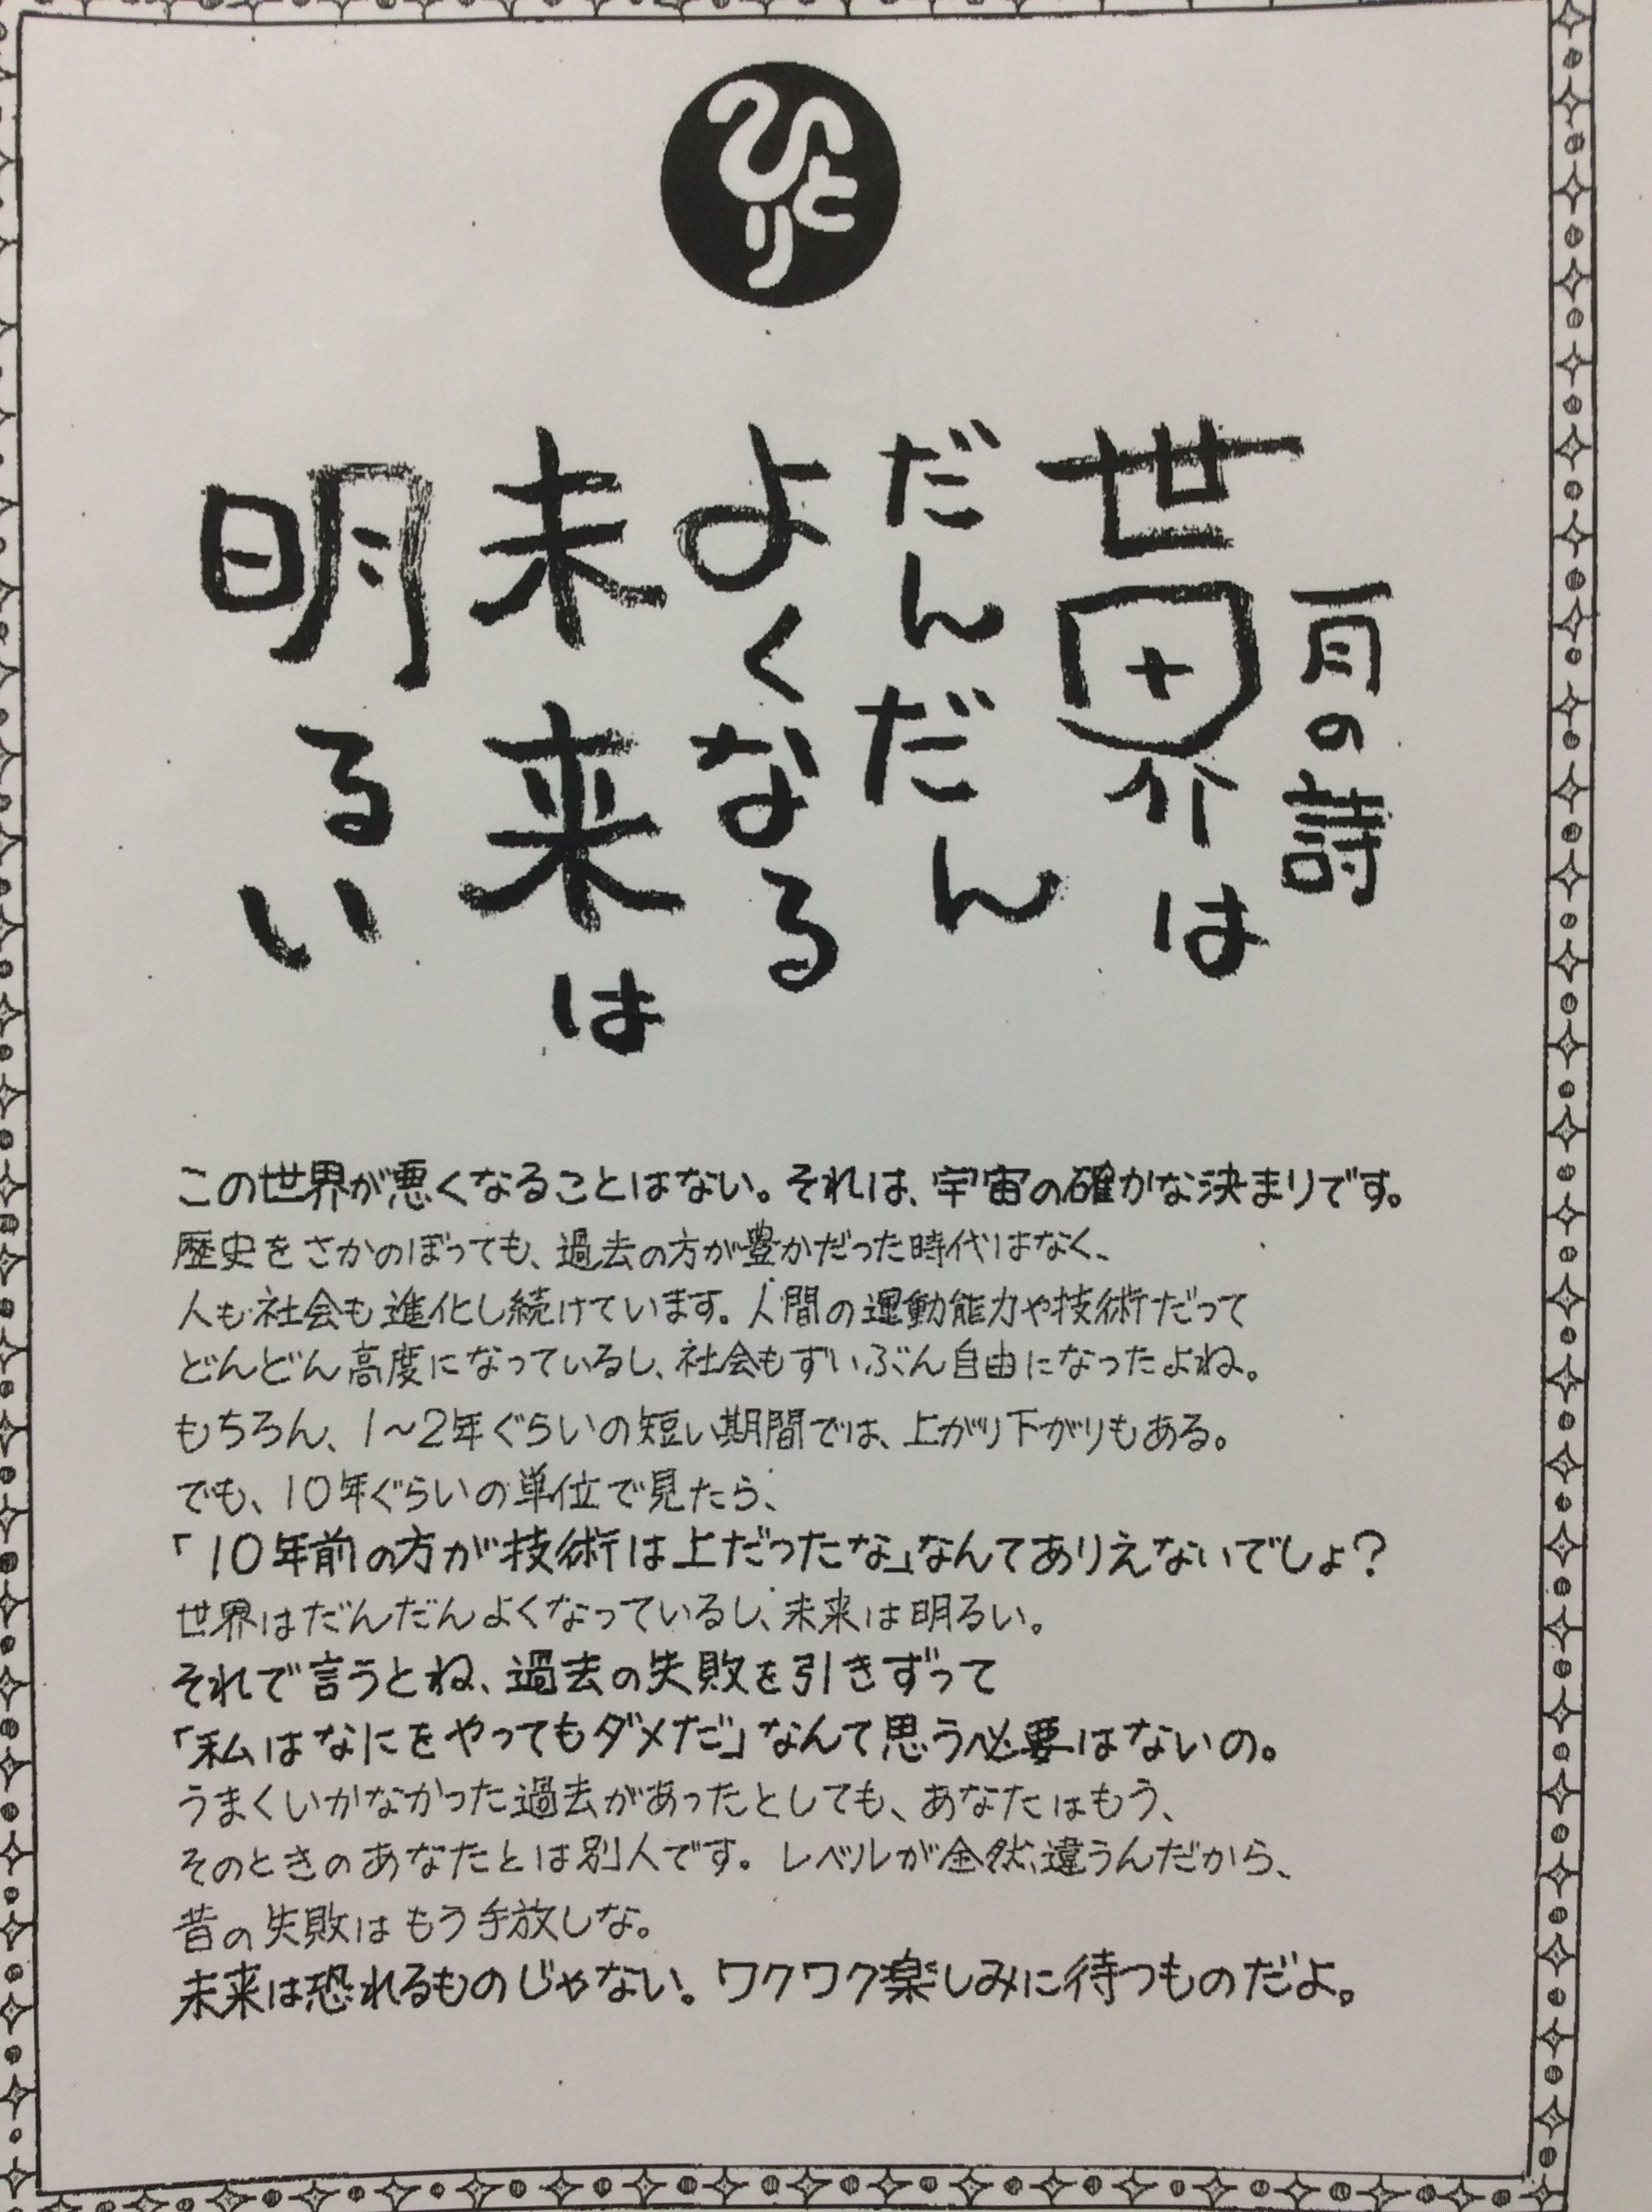 ひとり
一月の詩
世界は
だんだん
よくなる
未来は
明るい
この世界が悪くなることはない。それは、宇宙の確かな決まりです。
歴史をさかのぼっても、過去の方が豊かだった時代はなく、
人も社会も進化し続けています。人間の運動能力や技術だって
どんどん高度になっているし、社会もずいぶん自由になったよね。
もちろん、1〜2年ぐらいの短い期間では、上がり下がりもある。
でも、10年ぐらいの単位で見たら、
「10年前の方が技術は上だったな」なんてありえないでしょ？
世界はだんだんよくなっているし、未来は明るい。
それで言うとね、過去の失敗を引きずって
「私はなにをやってもダメだ」なんて思う必要はないの。
うまくいかなかった過去があったとしても、あなたはもう、
そのときのあなたとは別人です。レベルが全然違うんだから、
昔の失敗はもう手放しな。
未来は恐れるものじゃない。ワクワク楽しみに待つものだよ。